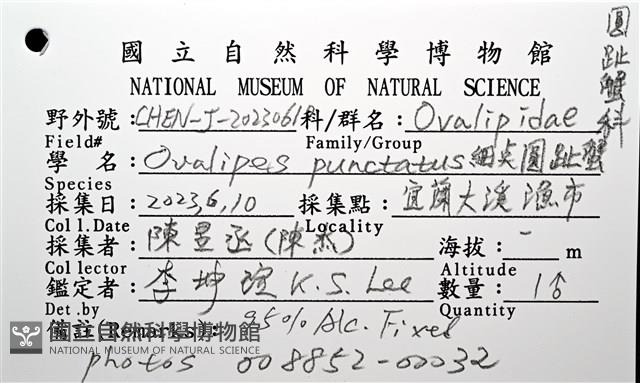 國立自然科學博物館
NATIONAL MUSEUM OF NATURAL SCIENCE
圓趾蟹科
野外號：CHEN-J-20230610 科/群名：Ovalipidae
Field# Family/Group
學名：Ovalipes punctatus 細點圓趾蟹
Species
採集日：2023,6,10 採集點：宜蘭大溪漁市
Coll.Date Locality
採集者：陳昱丞(陳杰) 海拔：- m
Collector Altitude
鑑定者：李坤瑄 K.S. Lee 數量：1♂
Det.by Quantity
備註(Remarks)：95% Alc. Fixed
國立自然科學博物館
NATIONAL MUSEUM OF NATURAL SCIENCE
photos 008852-00032